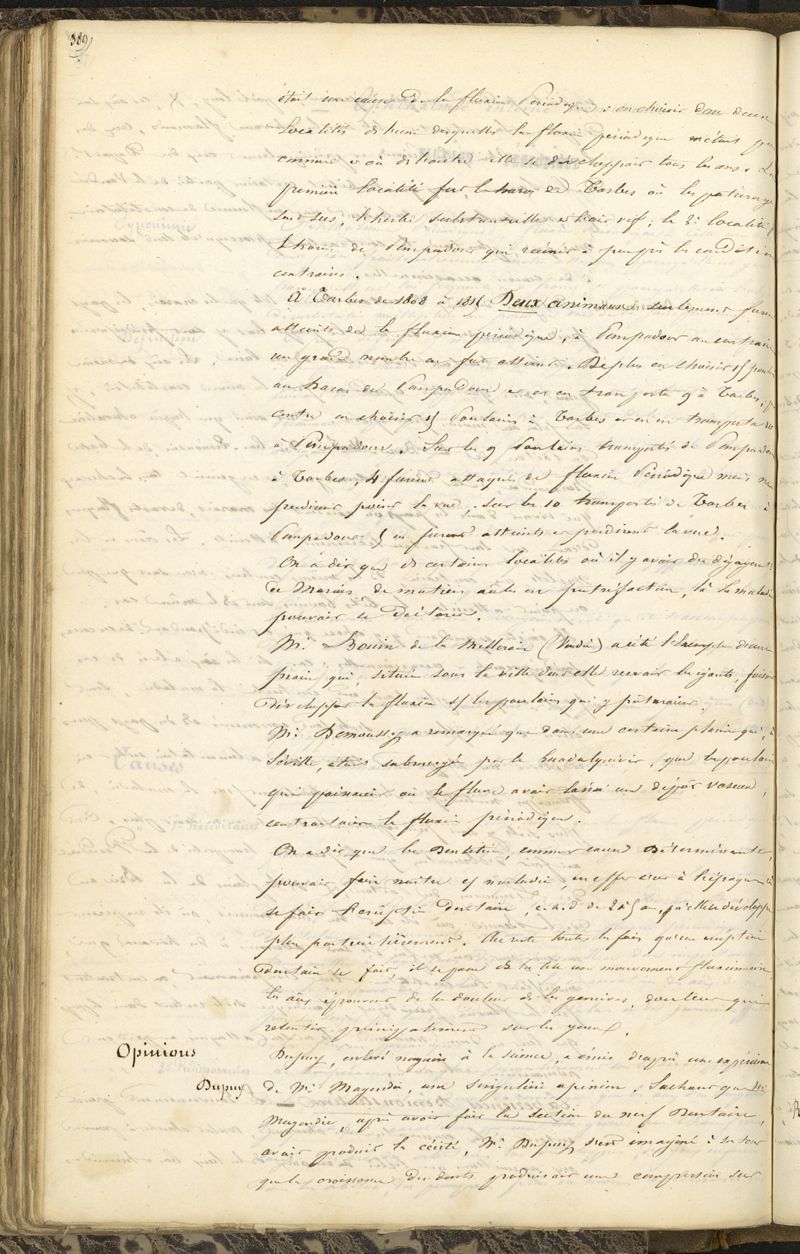 389
était une cause de la fluxion Périodique : on choisit donc deux
localités dans l'une desquelles la fluxion périodique n'était pas
connue et où dans l'autre elle se développait tous les ans. La
première localité fut le haras de Tarbes où les pâturages
sont secs, l'herbe substantielle et l'air vif ; la 2e localité
le haras de Pompadour qui réunit à peu près les conditions
contraires.
À Tarbes de 1808 à 1815 Deux animaux seulement furent
atteints de la fluxion périodique, à Pompadour au contraire
un grand nombre en fut atteint. De plus on choisit 15 poulains
au haras de Pompadour et on en transporta 9 à Tarbes,
contre on choisit 15 Poulains à Tarbes et on en transporta 10
à Pompadour. Sur les 9 Poulains transportés de Pompadour
à Tarbes, 4 furent attaqués de fluxion Périodique mais ne
perdirent point la vue, sur les 10 transportés de Tarbes à
Pompadour 5 en furent atteints et perdirent la vue.
On a dit que ds certaines localités où il y avait des
de Marais, de matières en putréfaction, là la maladie
pouvait se déclarer.
Mr. de la (Vendée) a cité l'exemple d'une
prairie qui, située sous la ville dont elle recevait les égouts, faisait
développer la fluxion s/ les poulains qui y pâturaient.
Mr. Demoussy a remarqué que dans une certaine plaine qui, à
Séville, était submergée par le Guadalquivir, que les poulains
qui paissaient où le fleuve avait laissé un dépôt vaseux,
contractaient la fluxion périodique.
On a dit que la Dentition, comme cause Déterminante,
pouvait faire naître cette maladie, en effet c'est à l'époque où
se fait l'éruption dentaire, c.à.d. de 2 à 5 ans, qu'elle se développe
plus particulièrement. Au reste toutes les fois qu'une éruption
dentaire se fait, il se passe ds la tête un mouvement fluxionnaire
les anx éprouvent de la douleur ds les gencives, douleur qui
retentit principalement sur les yeux.
Opinions
Dupuy
Dupuy, enlevé naguère à la science, a émis d'après une expérience
de Mr Magendie, une singulière opinion. Sachant que Mr
Magendie, après avoir fait la section du nerf Dentaire,
avait produit la cécité, Mr. Dupuy s'est imaginé à son tour
que la croissance des dents produisait une compression sur